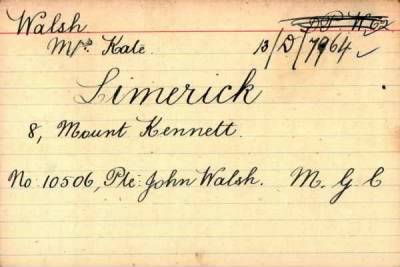 Walsh
Mrs Kate 13/D/7964
Limerick
8, Mount Kennett.
No 10506, Pte: John Walsh. M. G. C